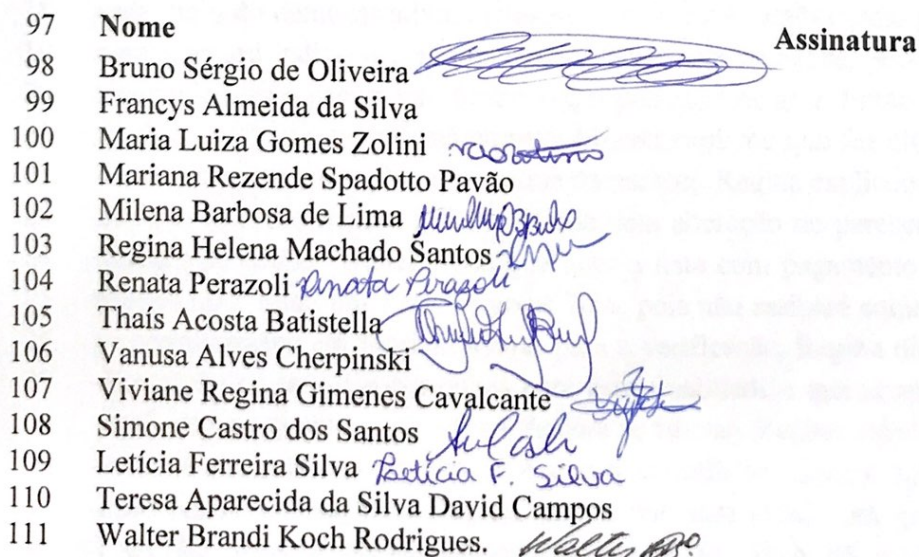 97 Nome Assinatura
98 Bruno Sérgio de Oliveira
99 Francys Almeida da Silva
100 Maria Luiza Gomes Zolini
101 Mariana Rezende Spadotto Pavão
102 Milena Barbosa de Lima
103 Regina Helena Machado Santos
104 Renata Perazoli Renata Perazoli
105 Thaís Acosta Batistella
106 Vanusa Alves Cherpinski
107 Viviane Regina Gimenes Cavalcante
108 Simone Castro dos Santos
109 Letícia Ferreira Silva Letícia F. Silva
110 Teresa Aparecida da Silva David Campos
111 Walter Brandi Koch Rodrigues. Walter